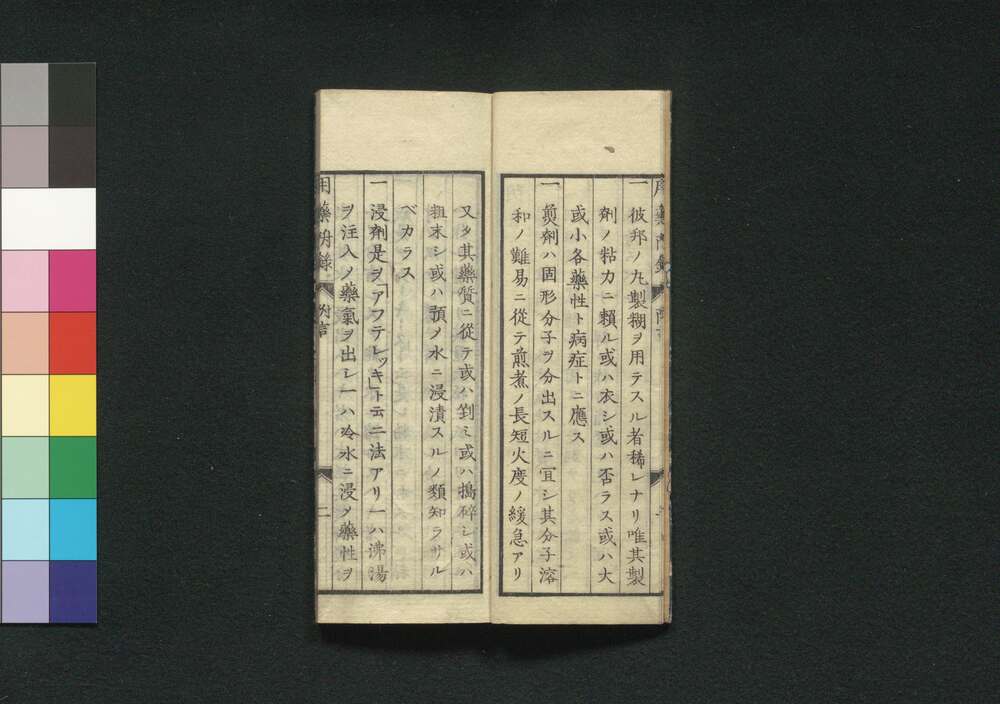 一彼邦ノ丸製糊ヲ用テスル者稀レナリ唯其製
剤ノ粘力ニ頼ル或ハ衣シ或ハ否ラス或ハ大
或小各藥性ト病症トニ應ス
一煎剤ハ固形分子ヲ分出スルニ宜シ其分子溶
和ノ難易ニ從テ煎煮ノ長短火度ノ緩急アリ
又タ其藥質ニ從テ或ハ剉ミ或ハ搗碎シ或ハ
粗末シ或ハ預メ水ニ浸漬スルノ類知ラサル
ベカラス
一浸剤是ヲ「アフテレッキ」ト云ニ法アリ一ハ沸湯
ヲ注入ノ藥氣ヲ出シ一ハ冷水ニ浸メ藥性ヲ
用藥 錄 附言 二